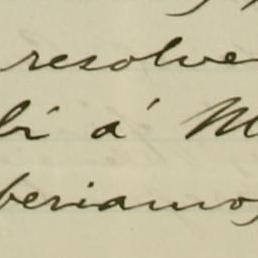 resolve
bi á M
beriamos